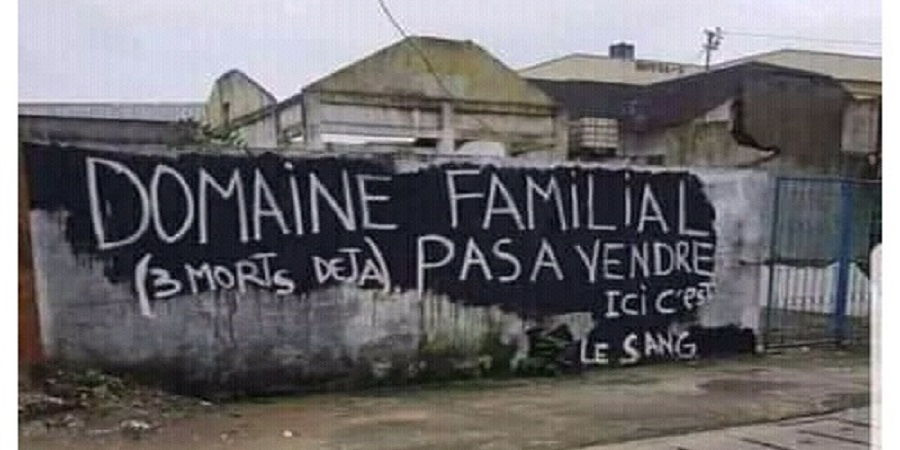 DOMAINE FAMILIAL
(3 MORTS DEJA) PAS A VENDRE
ICI C'EST
LE SANG